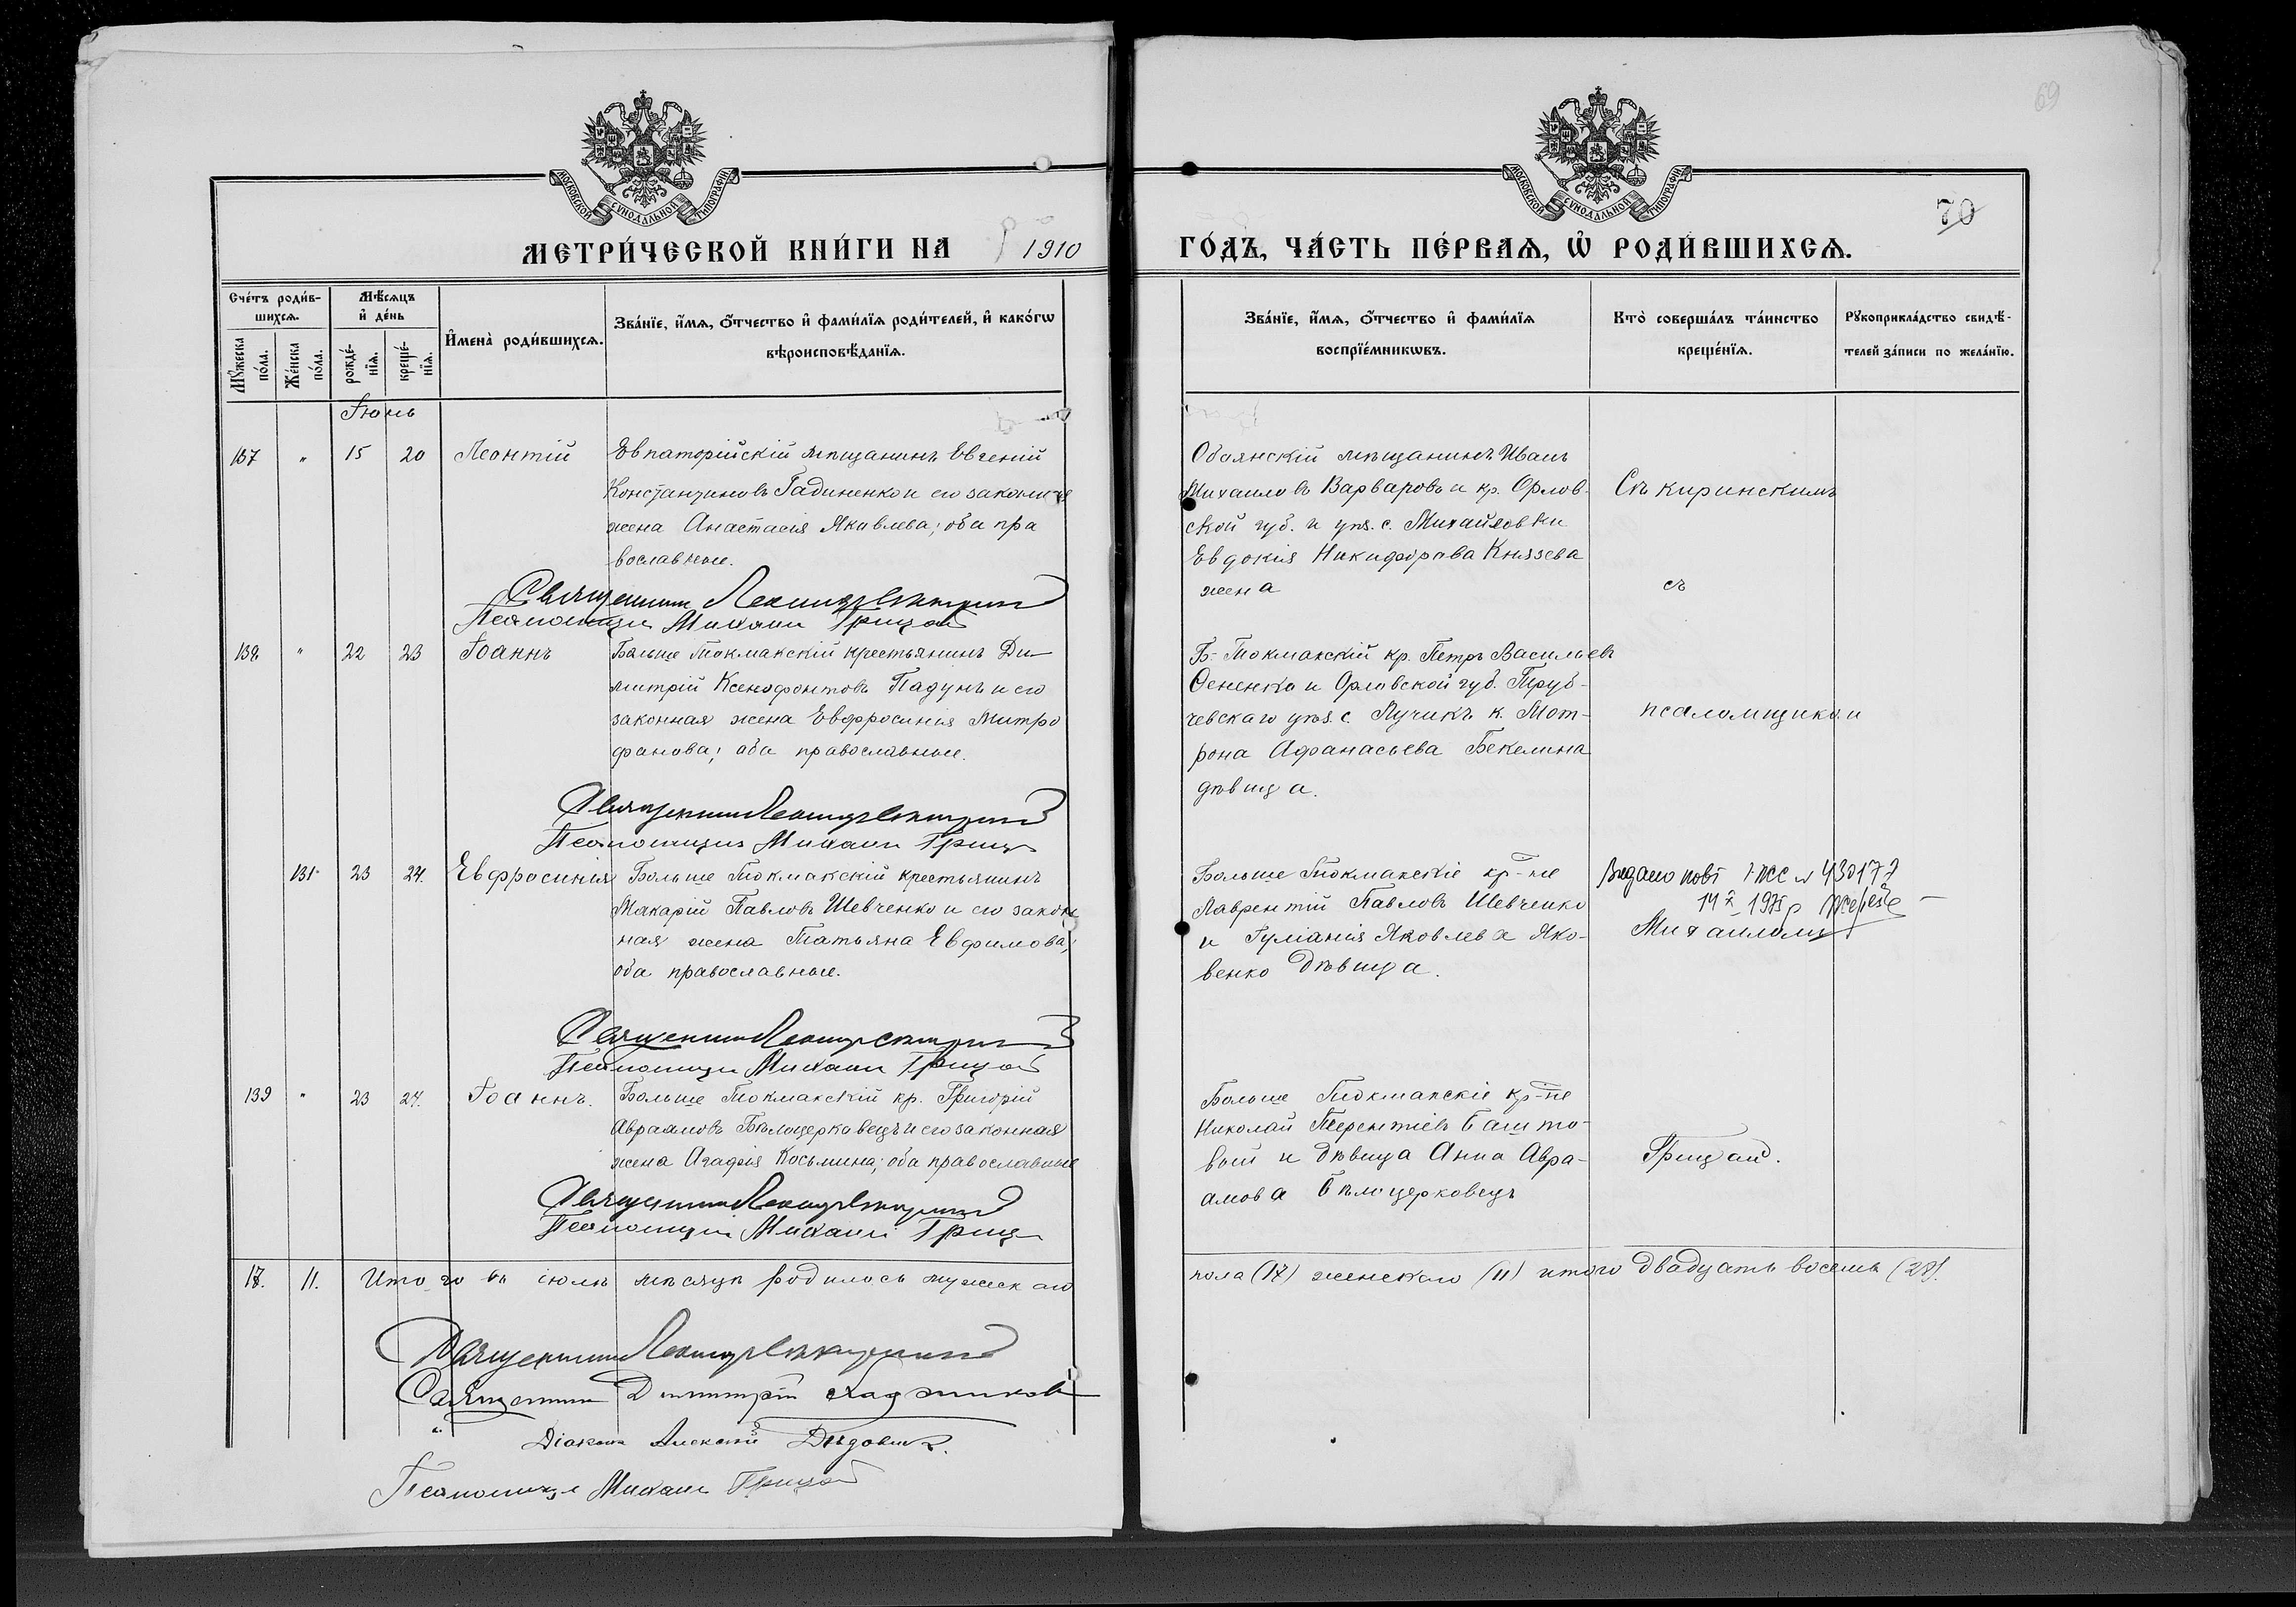 69
МОСКОВСКОЙ СѴНОДАЛЬНОЙ ТИПОГРАФІИ
МОСКОВСКОЙ СѴНОДАЛЬНОЙ ТИПОГРАФІИ
70
МЕТРИ́ЧЕСКОЙ КНИ́ГИ НА 1910
ГО́ДЪ, ЧА́СТЬ ПЕ́РВАѦ, Ѡ҆ РОДИ́ВШИХСѦ.
Сче́тъ роди́в-
шихсѧ.
Мѣ́сѧцъ
и҆ де́нь
И҆мена̀ роди́вшихсѧ.
Зва́нїе, и҆́мѧ, ѻ҆́тчество и҆ фами́лїѧ роди́телей, и҆ како́гѡ
вѣроисповѣ́данїѧ.
Мꙋ́жеска
по́ла.
Же́нска
по́ла.
рожде́-
нїѧ.
креще́-
нїѧ.
Зва́нїе, и҆́мѧ, ѻ҆́тчество и҆ фами́лїѧ
воспрїе́мникѡвъ.
Кто̀ соверша́лъ та́инство
креще́нїѧ.
Рꙋкоприкла́дство свидѣ́-
телей за́писи по жела́нїю.
Іюнь
137 " 15 20 Леонтій Евпаторійскій мѣщанинъ Евгеній
Константиновъ Гадиненко и его законная
жена Анастасія Яковлева; оба пра
вославные.
Священникъ
Псаломщикъ Михаилъ Грицай
Обоянскій мѣщанинъ Иванъ
Михаиловъ Варваровъ и кр. Орлов-
ской губ. и уѣз. с. Михайловки
Евдокія Никифорова Князева
жена
Съкиринскимъ
съ
138 " 22 23 Іоаннъ Больше Токмакскій крестьянинъ Ди-
митрій Ксенофонтовъ Падунъ и его
законная жена Евфросинія Митро
фанова; оба православные.
Священникъ
Псаломщикъ Михаилъ Грицай
Б-Токмакскій кр. Петръ Васильевъ
Сененко и Орловской губ. Труб-
чевскаго уѣз. с. Лучикъ к. Мот-
рона Афанасьева Бекелина
дѣвица.
псаломщикомъ
131 23 24. Евфросинія Больше Токмакскій крестьянинъ
Макарій Павловъ Шевченко и его закон
ная жена Татьяна Евфимова;
оба православные.
Священникъ
Псаломщикъ Михаилъ Грицай
Больше Токмакскіе кр-не
Лаврентій Павловъ Шевченко
и Іуліанія Яковлева Яко-
венко дѣвица.
Видано повт 430177
Михаиломъ
139 " 23 24. Іоаннъ. Больше Токмакскій кр. Григорій
Авраамовъ Бѣлоцерковецъ и его законная
жена Агафія Косьмина; оба православные
Священникъ
Псаломщикъ Михаилъ Грицай
Больше Токмакскіе кр-не
Николай Терентіевъ Башто-
вый и дѣвица Анна Авра-
амова Бѣлоцерковецъ
Грицай.
17. 11. Итого въ іюнѣ мѣсяцѣ родилось мужескаго
пола (17) женскаго (11) итого двадцать восемь (28).
Священникъ
Священникъ Димитрій
Діаконъ Алексій Дѣдовичъ.
Псаломщикъ Михаилъ Грицай